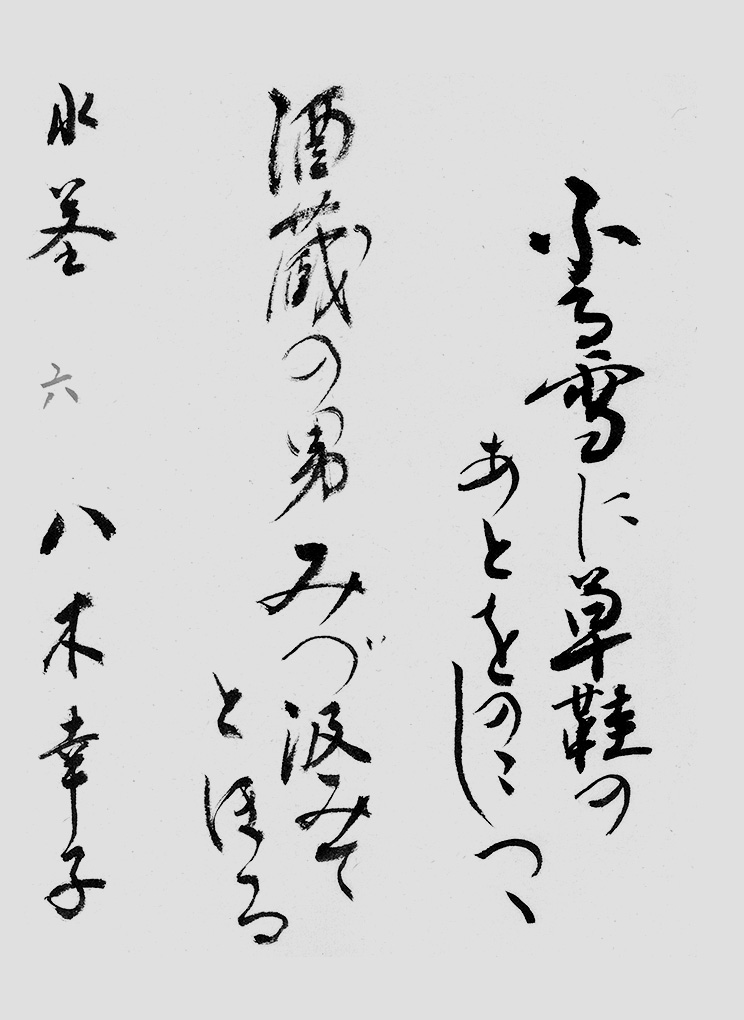 ふる雪に草鞋の
あとをのこしつゝ
酒蔵の男みづ汲みて
とほる
水茎 六 八木幸子